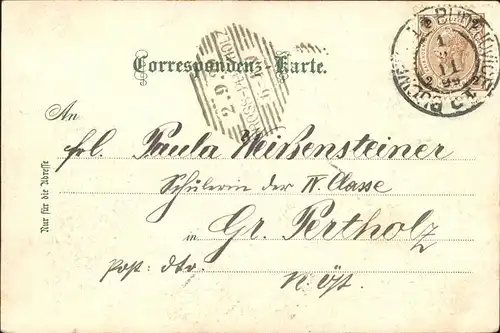 Correspondenz-Karte.
Nur für die Adresse
An
Frl. Paula Weißensteiner
Schülerin der IV. Classe
in Gr. Pertholz
Post: dtv.
N. Öst.